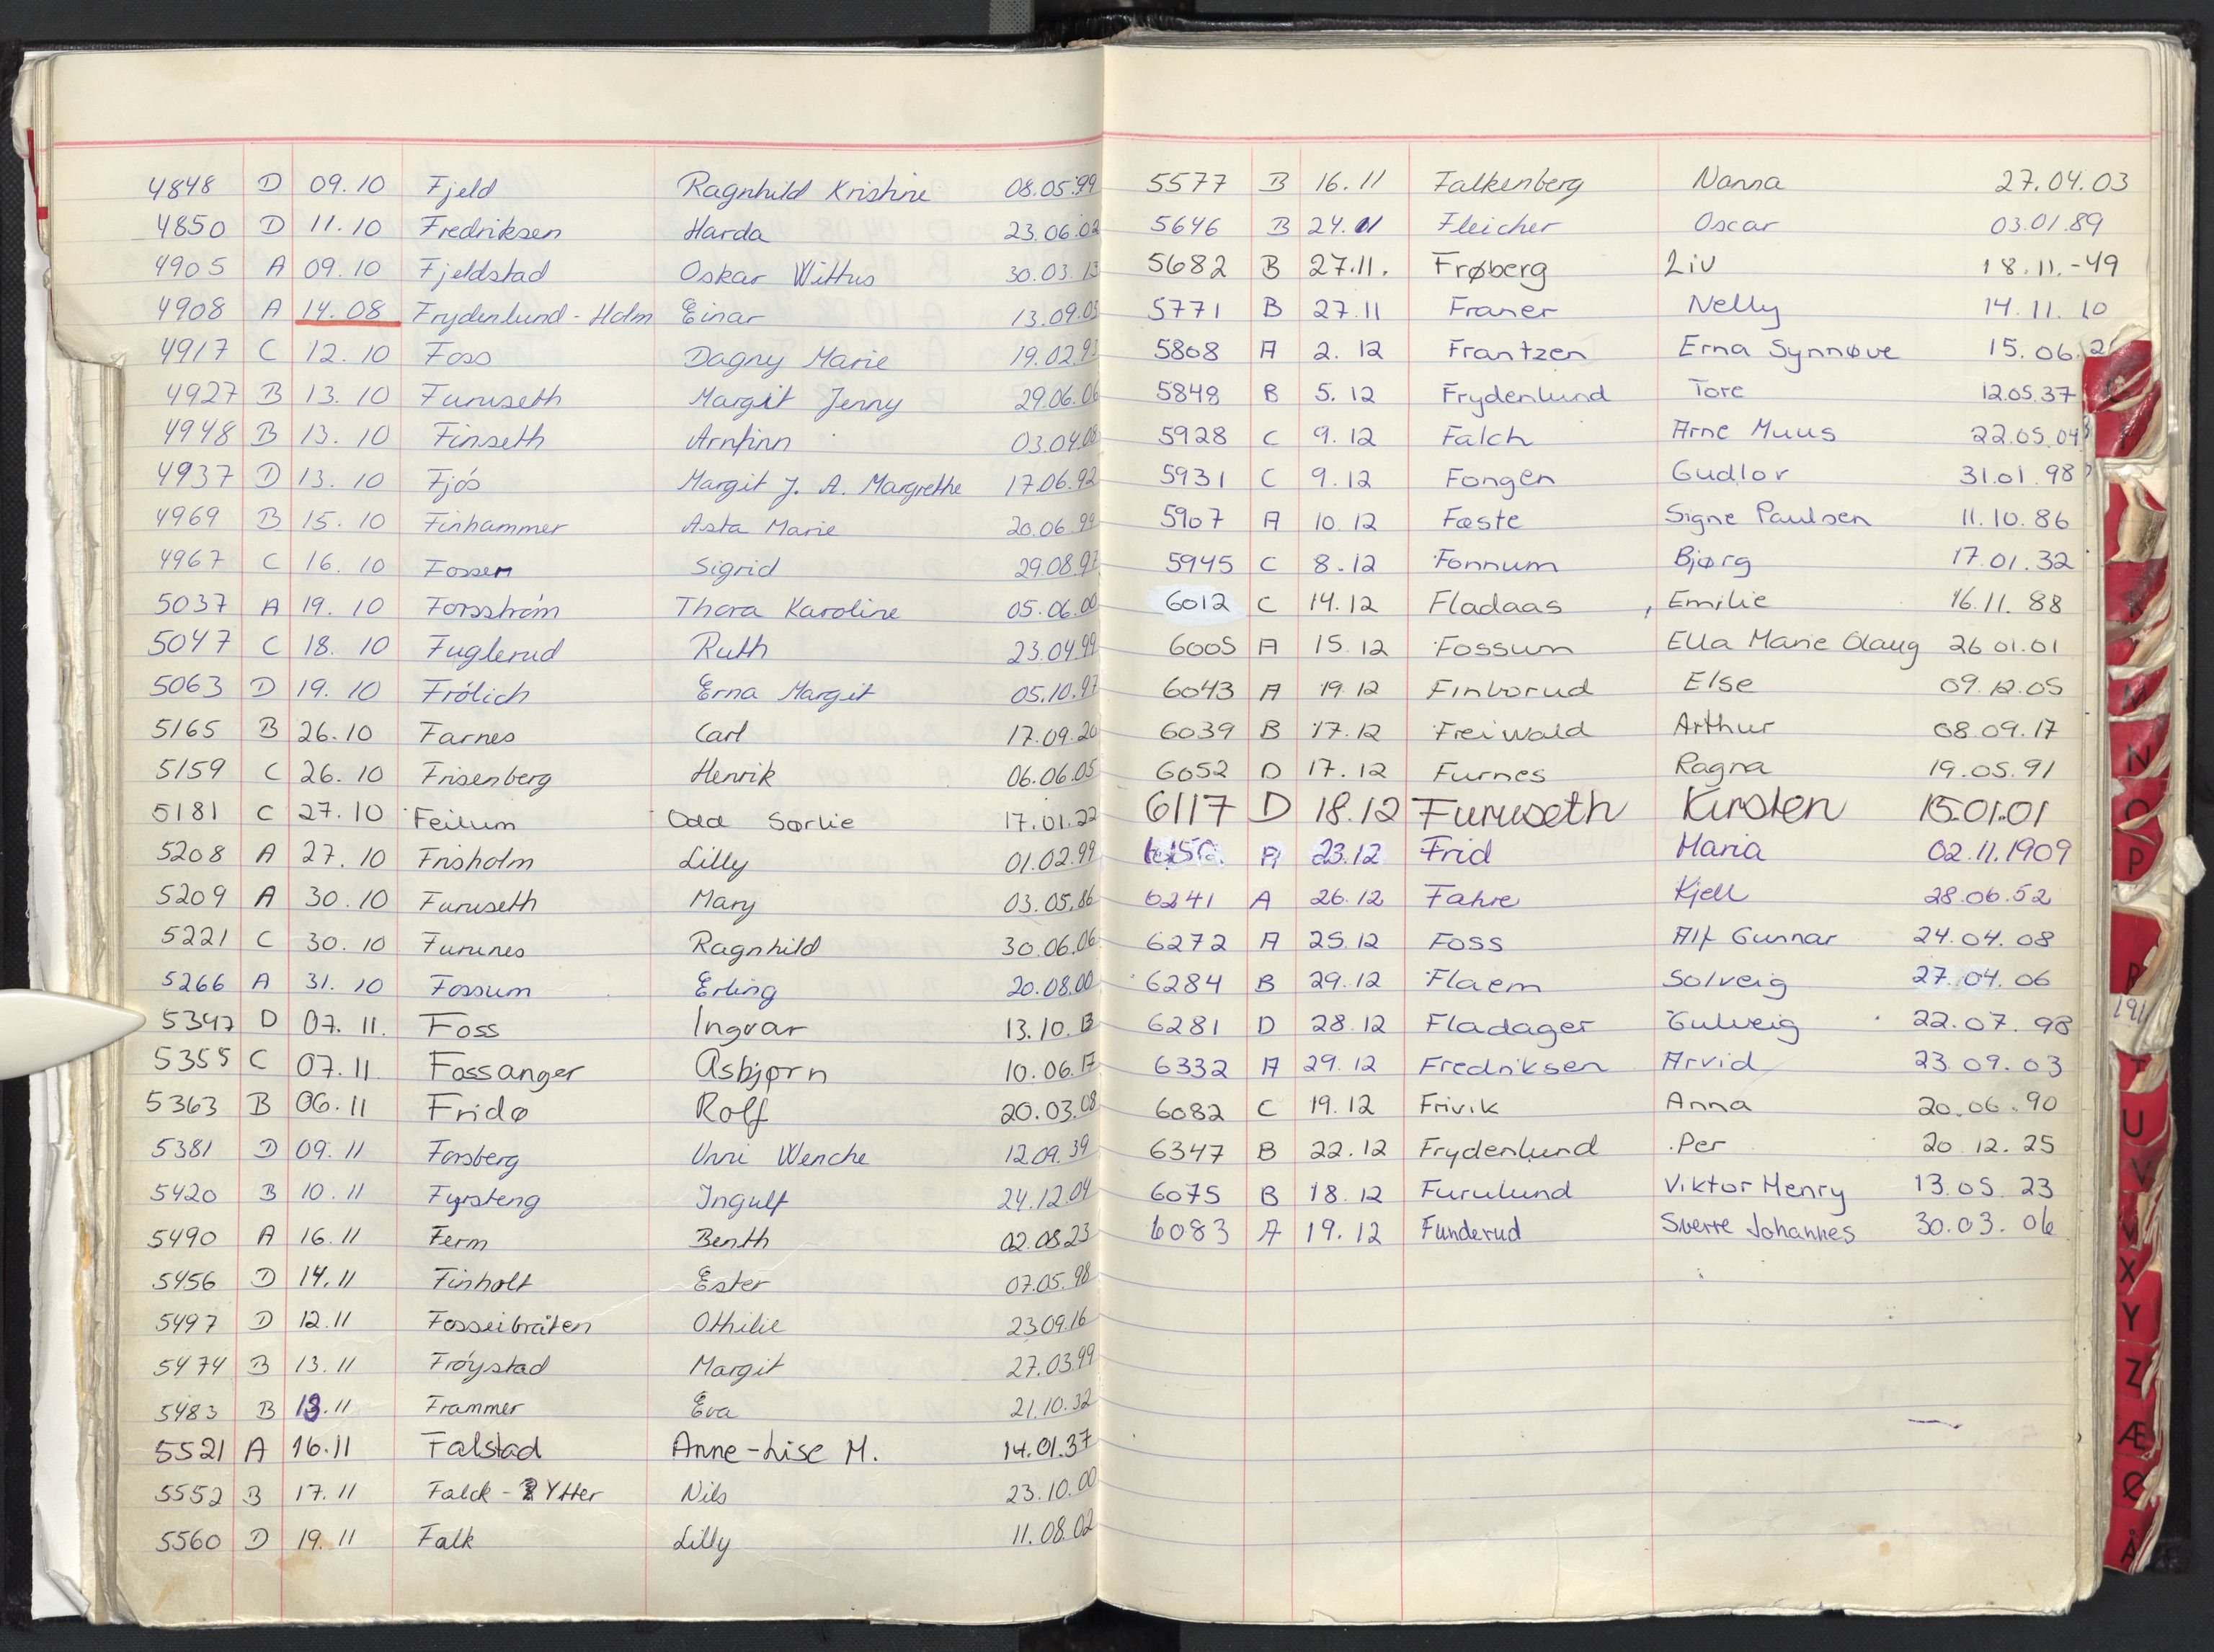 4848 D 09.10 Fjeld Ragnhild Kristine 08.05.99
4850 D 11.10 Fredriksen Harda 23.06.02
4905 A 09.10 Fjeldstad Oskar Wittus 30.03.13
4908 A 14.08 Frydenlund-Holm Einar 13.09.03
4917 C 12.10 Foss Dagny Marie 19.02.93
4927 B 13.10 Furuseth Margit Jenny 29.06.06
4948 B 13.10 Finseth Arnfinn 03.04.08
4937 D 13.10 Fjós Margit J. A. Margrethe 17.06.92
4969 B 15.10 Finhammer Asta Marie 20.06.99
4967 C 16.10 Fossen Sigrid 29.08.97
5037 A 19.10 Forsström Thora Karoline 05.06.00
5047 C 18.10 Fuglerud Ruth 23.04.99
5063 D 19.10 Frólich Erna Margit 05.10.97
5165 B 26.10 Farnes Carl 17.09.20
5159 C 26.10 Frisenberg Henrik 06.06.05
5181 C 27.10 Feilum Odd Sørlie 17.01.22
5208 A 27.10 Frisholm Lilly 01.02.99
5209 A 30.10 Furuseth Mary 03.05.86
5221 C 30.10 Furunes Ragnhild 30.06.06
5266 A 31.10 Fossum Erling 20.08.00
5347 D 07.11. Foss Ingvar 13.10.13
5355 C 07.11 Fossanger Asbjørn 10.06.17
5363 B 06.11 Fridø Rolf 20.03.08
5381 D 09.11 Forsberg Unni Wenche 12.09.39
5420 B 10.11 Fyrsteng Ingulf 24.12.04
5490 A 16.11 Ferm Benth 02.08.23
5456 D 14.11 Finholt Ester 07.05.98
5497 D 12.11 Fosseibråten Othilie 23.09.16
5474 B 13.11 Fróystad Margit 27.03.99
5483 B 13.11 Frammer Eva 21.10.32
5521 A 16.11 Falstad Anne-Lise M. 14.01.37
5552 B 17.11 Falck - Ytter Nils 23.10.00
5560 D 19.11 Falk Lilly 11.08.02
5577 B 16.11 Falkenberg Nanna 27.04.03
5646 B 24.11 Fleicher Oscar 03.01.89
5682 B 27.11. Frøberg Liv 18.11.-49
5771 B 27.11 Franer Nelly 14.11.10
5808 A 2.12 Frantzen Erna Synnøve 15.06.2
5848 B 5.12 Frydenlund Tore 12.05.37
5928 C 9.12 Falch Arne Muus 22.05.04
5931 C 9.12 Fongen Gudlov 31.01.98
5907 A 10.12 Fæste Signe Paulsen 11.10.86
5945 C 8.12 Fonnum Bjørg 17.01.32
6012 C 14.12 Fladaas , Emilie 16.11.88
6005 A 15.12 Fossum Ella Marie Olaug 26.01.01
6043 A 19.12 Finborud Else 09.12.05
6039 B 17.12 Freiwald Arthur 08.09.17
6052 D 17.12 Furnes Ragna 19.05.91
6117 D 18.12 Furuseth Kirsten 15.01.01
23.12 Frid Maria 02.11.1909
6241 A 26.12 Fahre Kjell 28.06.52
6272 A 25.12 Foss Alf Gunnar 24.04.08
6284 B 29.12 Flaem Solveig 27.04.06
6281 D 28.12 Fladager Gulveig 22.07.98
6332 A 29.12 Fredriksen Arvid 23.09.03
6082 C 19.12 Frivik Anna 20.06.90
6347 B 22.12 Frydenlund Per 20.12.25
6075 B 18.12 Furulund Viktor Henry 13.05.23
6083 A 19.12 Funderud Sverre Johannes 30.03.06
N
O
P
R
T
U
V
X
Y
Z
Æ
Ø
Å